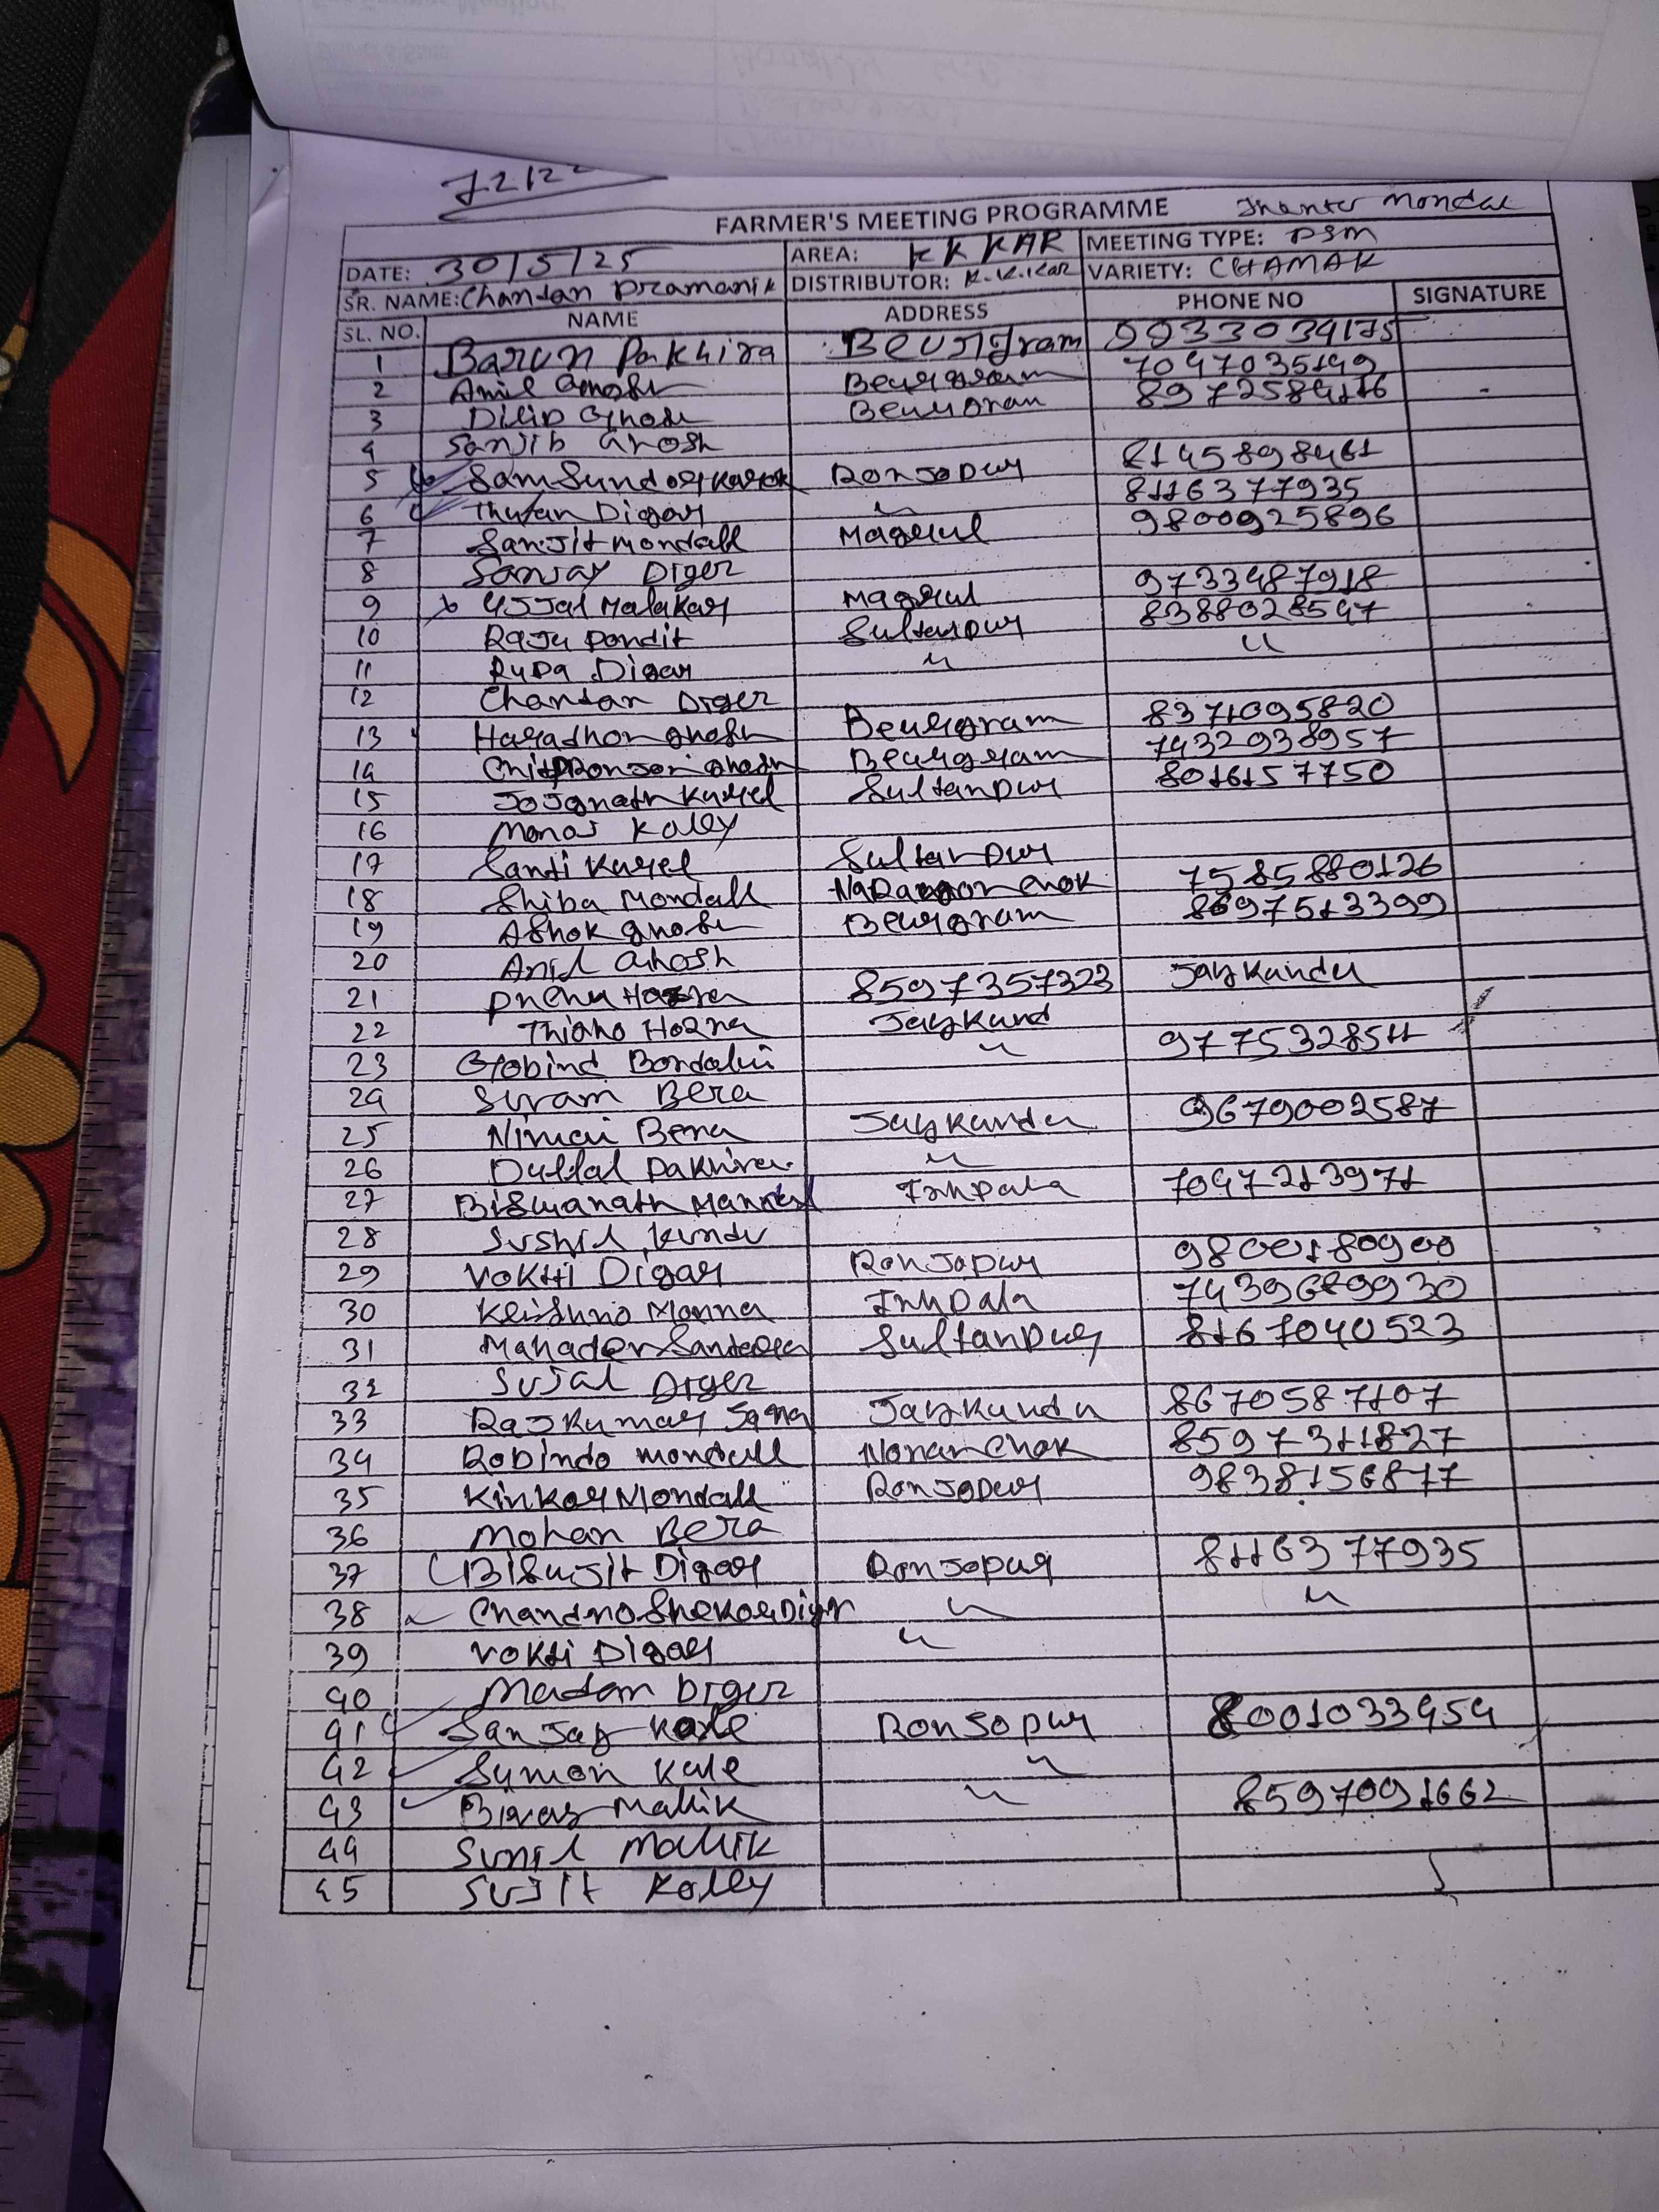 FARMER'S MEETING PROGRAMME Jhantu Mondal
DATE: 30/5/25 AREA: KK KAR MEETING TYPE: PSM
SR. NAME: Chandan Pramanik DISTRIBUTOR: K.K.Kar VARIETY: CHAMAK
SL. NO. NAME ADDRESS PHONE NO SIGNATURE
1 Barun Pakhira Beurgram
2 Anil Ghosh Beurgram 7047035149
3 Dilip Ghosh Beurgram 8972584116
4 Sanjib Ghosh
5 Sam Sundor Karak Ronjopur 8145898461
6 Digar 〃 8116377935
7 Sanjit Mondall Magrul 9800925896
8 Sanjay Diger
9 Ujjal Malakar Magrul 9733487918
10 Raju Pondit Sultanpur 8388028547
11 Rupa Digar 〃 〃
12 Chandan Diger
13 Haradhon Ghosh Beurgram 8371095820
14 Chittronjon Ghosh Beurgram 7432938957
15 Jojgnath Kurel Sultanpur 8016157750
16 Monas Koley
17 Santi Kurel Sultanpur
18 Shiba Mondall 7585880126
19 Ashok Ghosh Beurgram 8697513399
20 Anil Ghosh
21 Hazra 8597357323 Jaykundu
22 Hozra Jaykund
23 Gobind Bordalui 〃 9775328511
24 Sivram Bera
25 Nimai Bera Jaykundu 9679002587
26 Dullal Pakhira 〃
27 Biswanath Mandal Inhpala 7047213971
28 Sushil Kundu
29 Vokti Digar Ronjopur 9800180900
30 Krishno Monna Inhpala 7439689930
31 Mahadev Santra Sultanpur 8167040523
32 Sujal Diger
33 Rajkumar Sana Jaykundu 8670587107
34 Robindo Mondall Noranchok 8597311827
35 Kinkar Mondall Ronjopur 9838156877
36 Mohan Bera
37 Biswjit Digar Ronjopur 8116377935
38 Chandro Shekor Digar 〃 〃
39 Vokti Digar 〃
40 Madan Diger
41 Sanjay Kale Ronjopur 8001033454
42 Sumon Kale 〃
43 Mallik 〃 8597091662
44 Sunil Mallik
45 Sujit Kolley